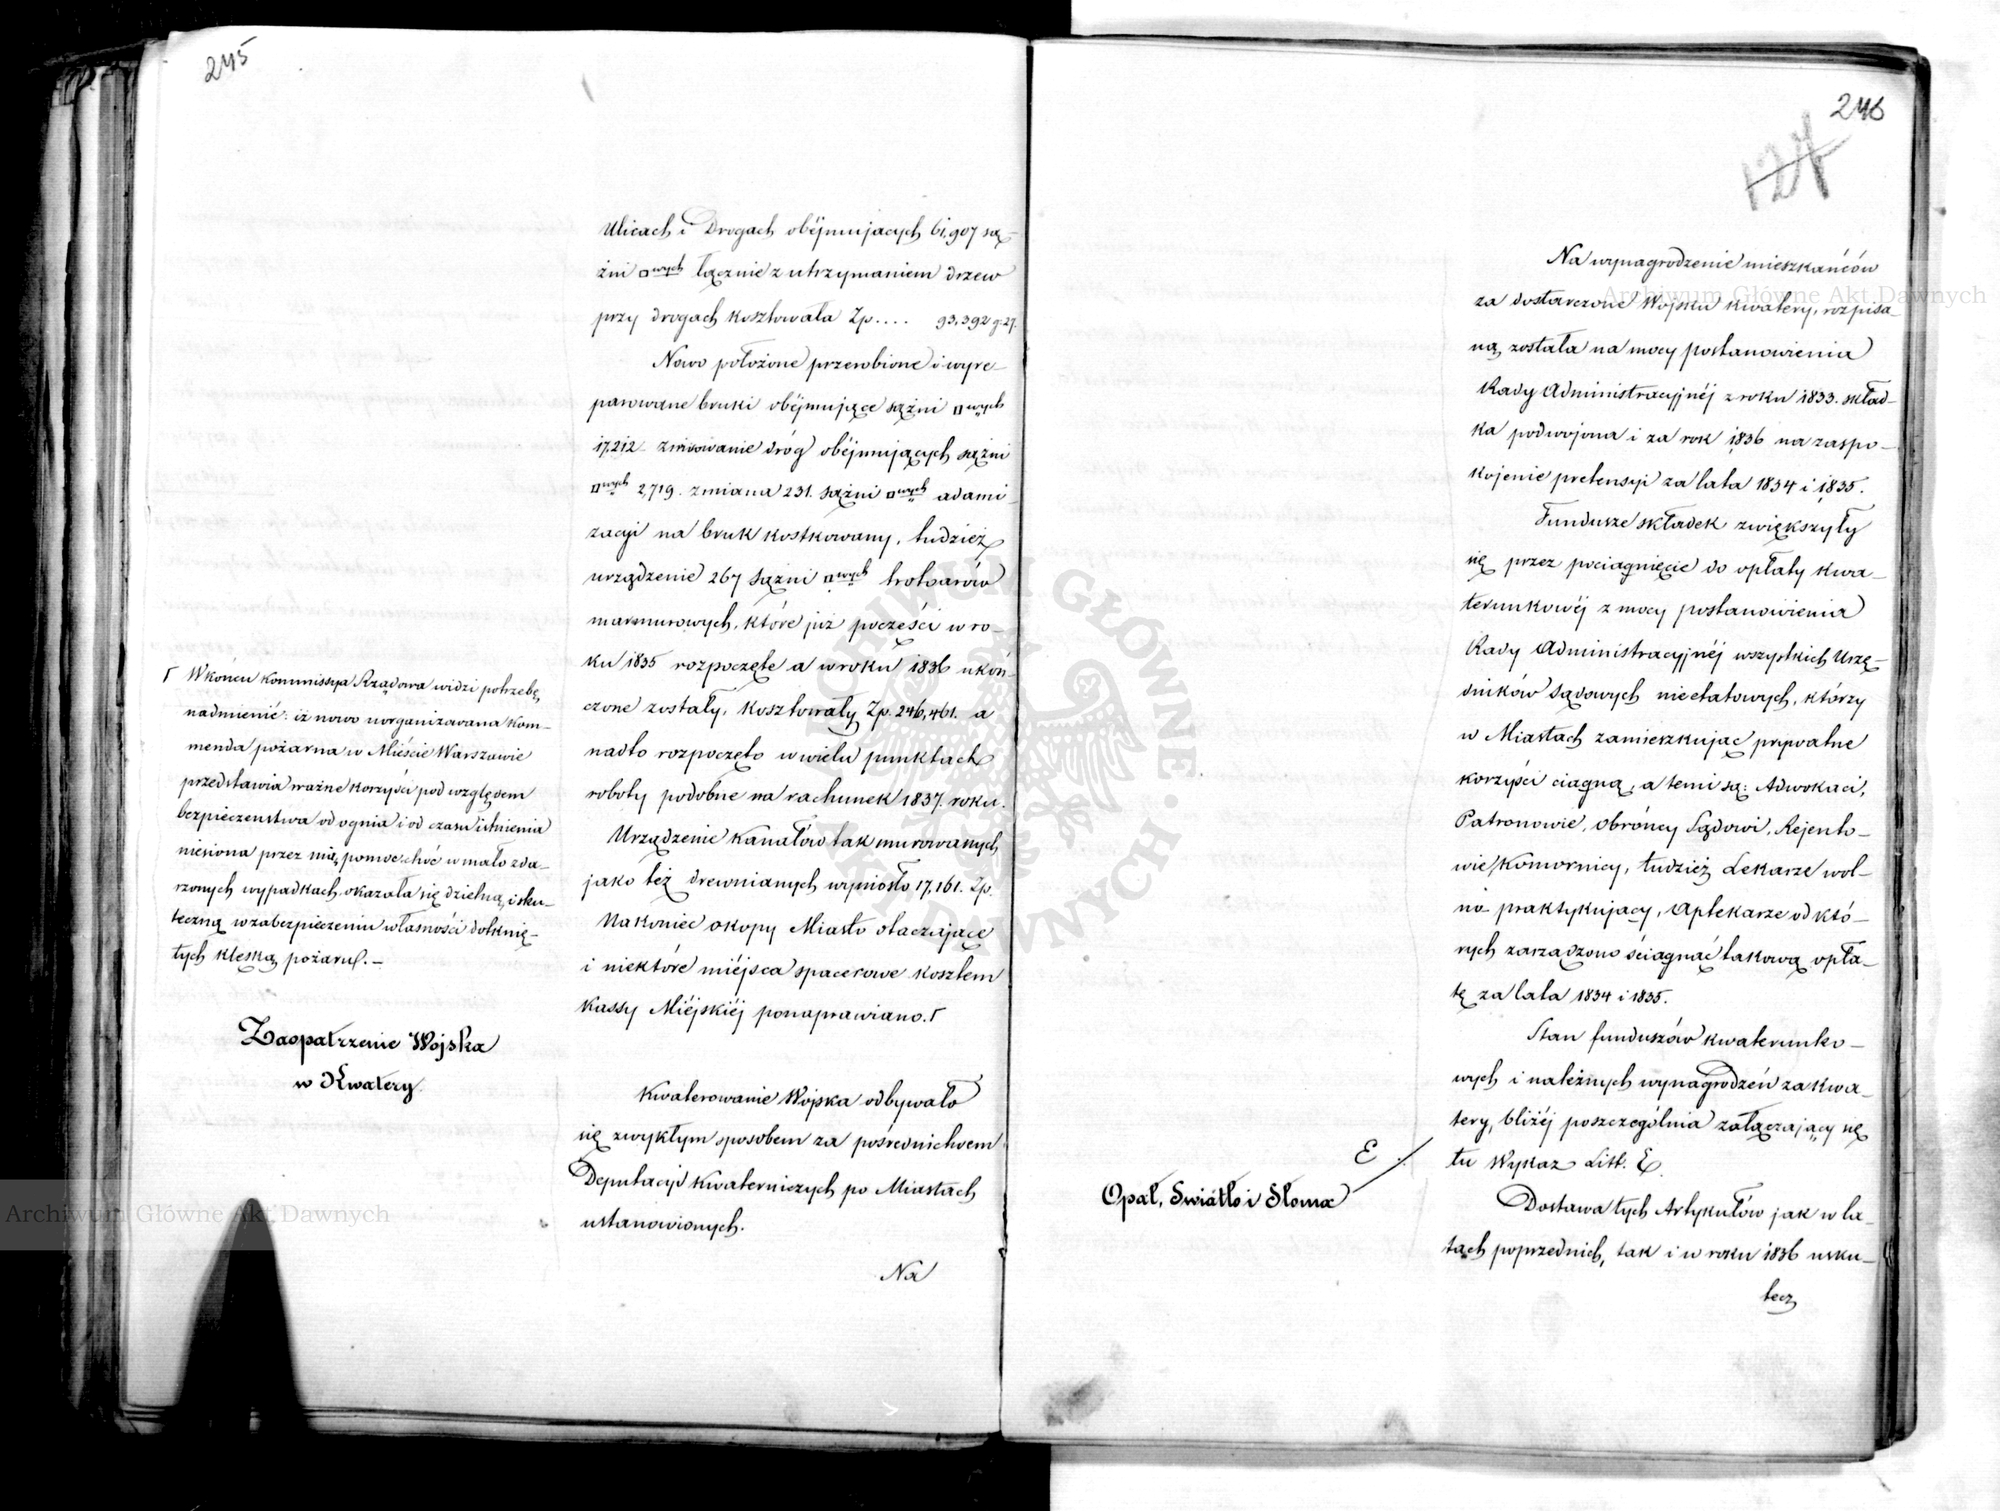 245
Ulicach i Drogach obéjmujacych 61,907 są-
żni □wych łącznie z utrzymaniem drzew
przy drogach kosztowała Zp.... 93,392 g. 27.
Nowo położone przerobione i wyre-
parowane bruki obéjmujące sążni □wych
17,212 zwirowanie dróg obéjmujących sążni
□wych 2,719. zmiana 231. sążni □wych adami-
zacyi na bruk kostkowany, tudzież
urządzenie 267 sążni □wych trotoarów
marmurowych, które już poczęści w ro-
ku 1835 rozpoczęte a w roku 1836 ukoń-
czone zostały, kosztowały Zp. 246,461. a
nadto rozpoczęto w wielu punktach
roboty podobne na rachunek 1837. roku.
Urządzenie Kanałów tak murowanych
jako też drewnianych wyniosło 17,161. Zp.
Nakoniec okopy Miasto otaczające
i niektóre miéjsca spacerowe kosztem
Kassy Miéjskiéj ponaprawiano. Γ
Γ W końcu Kommissya Rządowa widzi potrzebę
nadmienić: iż nowo uorganizowana Kom-
menda pożarna w Mieście Warszawie
przedstawia ważne korzyści pod względem
bezpieczenstwa od ognia i od czasu istnienia
niesiona przez nią pomoc choć w mało zda-
rzonych wypadkach okazała się dzielną i sku-
teczną w zabezpieczeniu własności dotknię-
tych klęską pożaru. –
Zaopatrzenie Wojska
w Kwatery.
Kwaterowanie Wojska odbywało
się zwykłym sposobem za pośrednictwem
Deputacyi Kwaterniczych po Miastach
ustanowionych.
Na
246
127
Na wynagrodzenie mieszkańców
za dostarczone Wojsku kwatery, rozpisa-
ną została na mocy postanowienia
Rady Administracyjnéj z roku 1833. skład-
ka podwojona i za rok 1836 na zaspo-
kojenie pretensyi za lata 1834 i 1835.
Fundusze składek zwiększyły
się przez pociągnięcie do opłaty kwa-
terunkowéj z mocy postanowienia
Rady Administracyjnéj wszystkich Urzę-
dników Sądowych nieetatowych, którzy
w Miastach zamieszkując prywatne
korzyści ciągną, a temi są: Adwokaci,
Patronowie, Obróńcy Sądowi, Rejento-
wie, Komornicy, tudzież Lekarze wol-
no praktykujący, Aptekarze od któ-
rych zarządzono ściągnąć takową opła-
tę za lata 1834 i 1835.
Stan funduszów kwaterunko-
wych i należnych wynagrodzeń za kwa-
tery, bliżéj poszczególnia załączający się
tu Wykaz Litt. E.
E ./.
Opał, Swiatło i Słoma
Dostawa tych Artykułów jak w la-
tach poprzednich, tak i w roku 1836 usku-
tecz
Archiwum Główne Akt Dawnych
Archiwum Główne Akt Dawnych
ARCHIWUM GŁÓWNE · AKT DAWNYCH ·